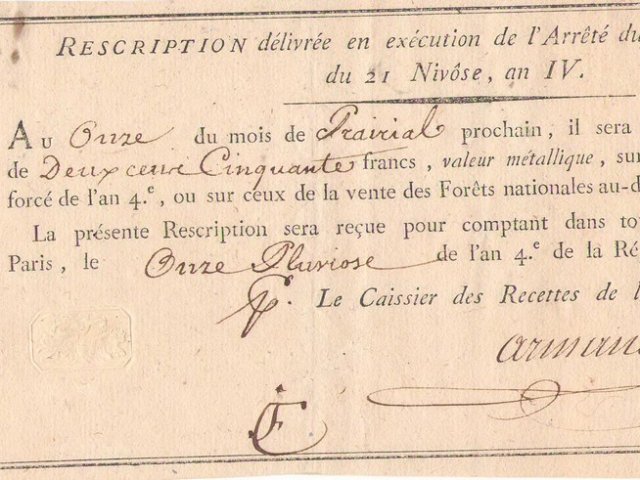 RESCRIPTION délivrée en exécution de l'Arrêté du
du 21 Nivôse, an IV.
AU Onze du mois de Prairial prochain, il sera
de Deux cent Cinquante francs, valeur métallique, sur
forcé de l'an 4.e, ou sur ceux de la vente des Forêts nationales au-d
La présente Rescription sera reçue pour comptant dans to
Paris, le Onze Pluviose de l'an 4.e de la Ré
Le Caissier des Recettes de l